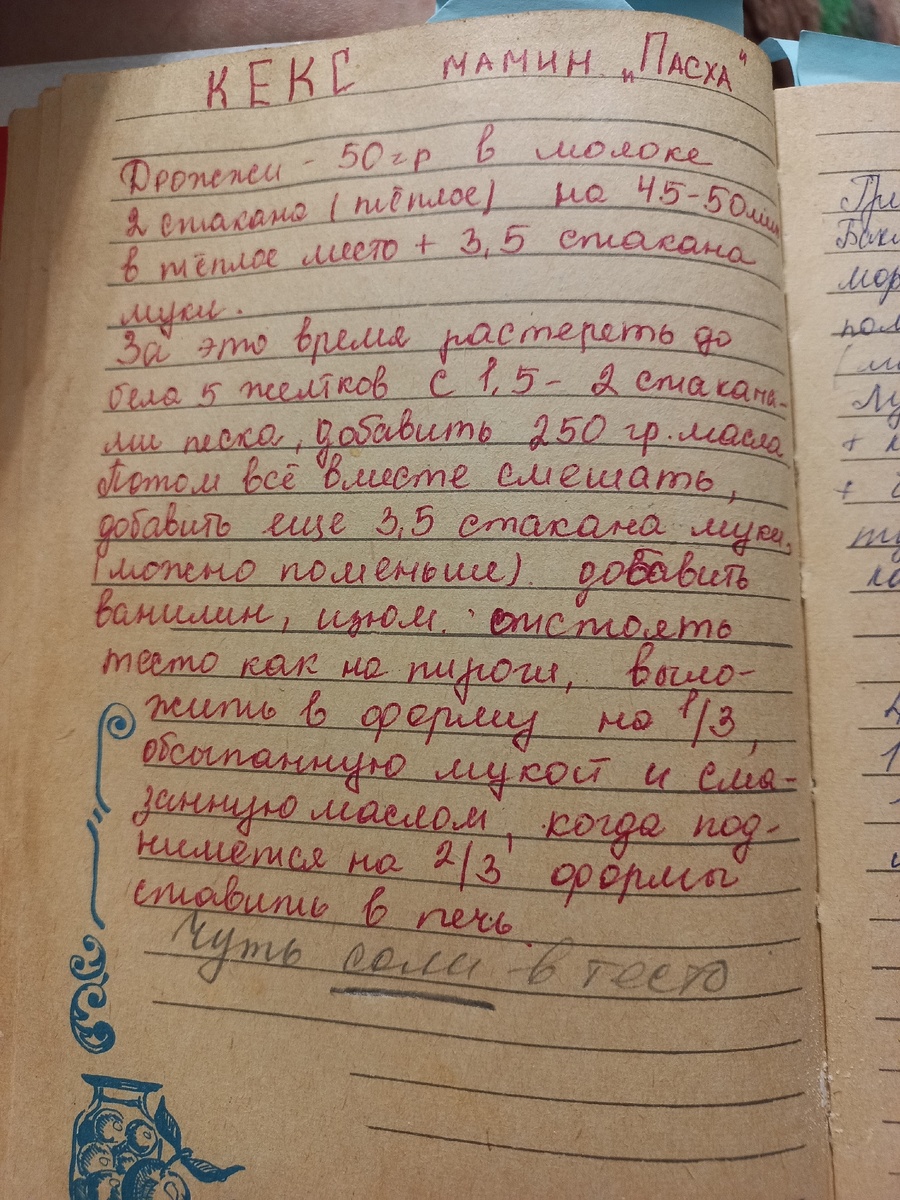 КЕКС МАМИН „ПАСХА"
Дрожжи - 50гр в молоке
2 стакана (тёплое) на 45-50мин
в тёплое место + 3,5 стакана
муки.
За это время растереть до
бела 5 желтков с 1,5 - 2 стакана-
ми песка, добавить 250 гр. масла
Потом всё вместе смешать,
добавить еще 3,5 стакана муки,
(можно поменьше) добавить
ванилин, изюм. отстоять
тесто как на пироги, выло-
жить в форму на 1/3,
обсыпанную мукой и сма-
занную маслом, когда под-
нимется на 2/3 формы
ставить в печь.
Чуть соли в тесто